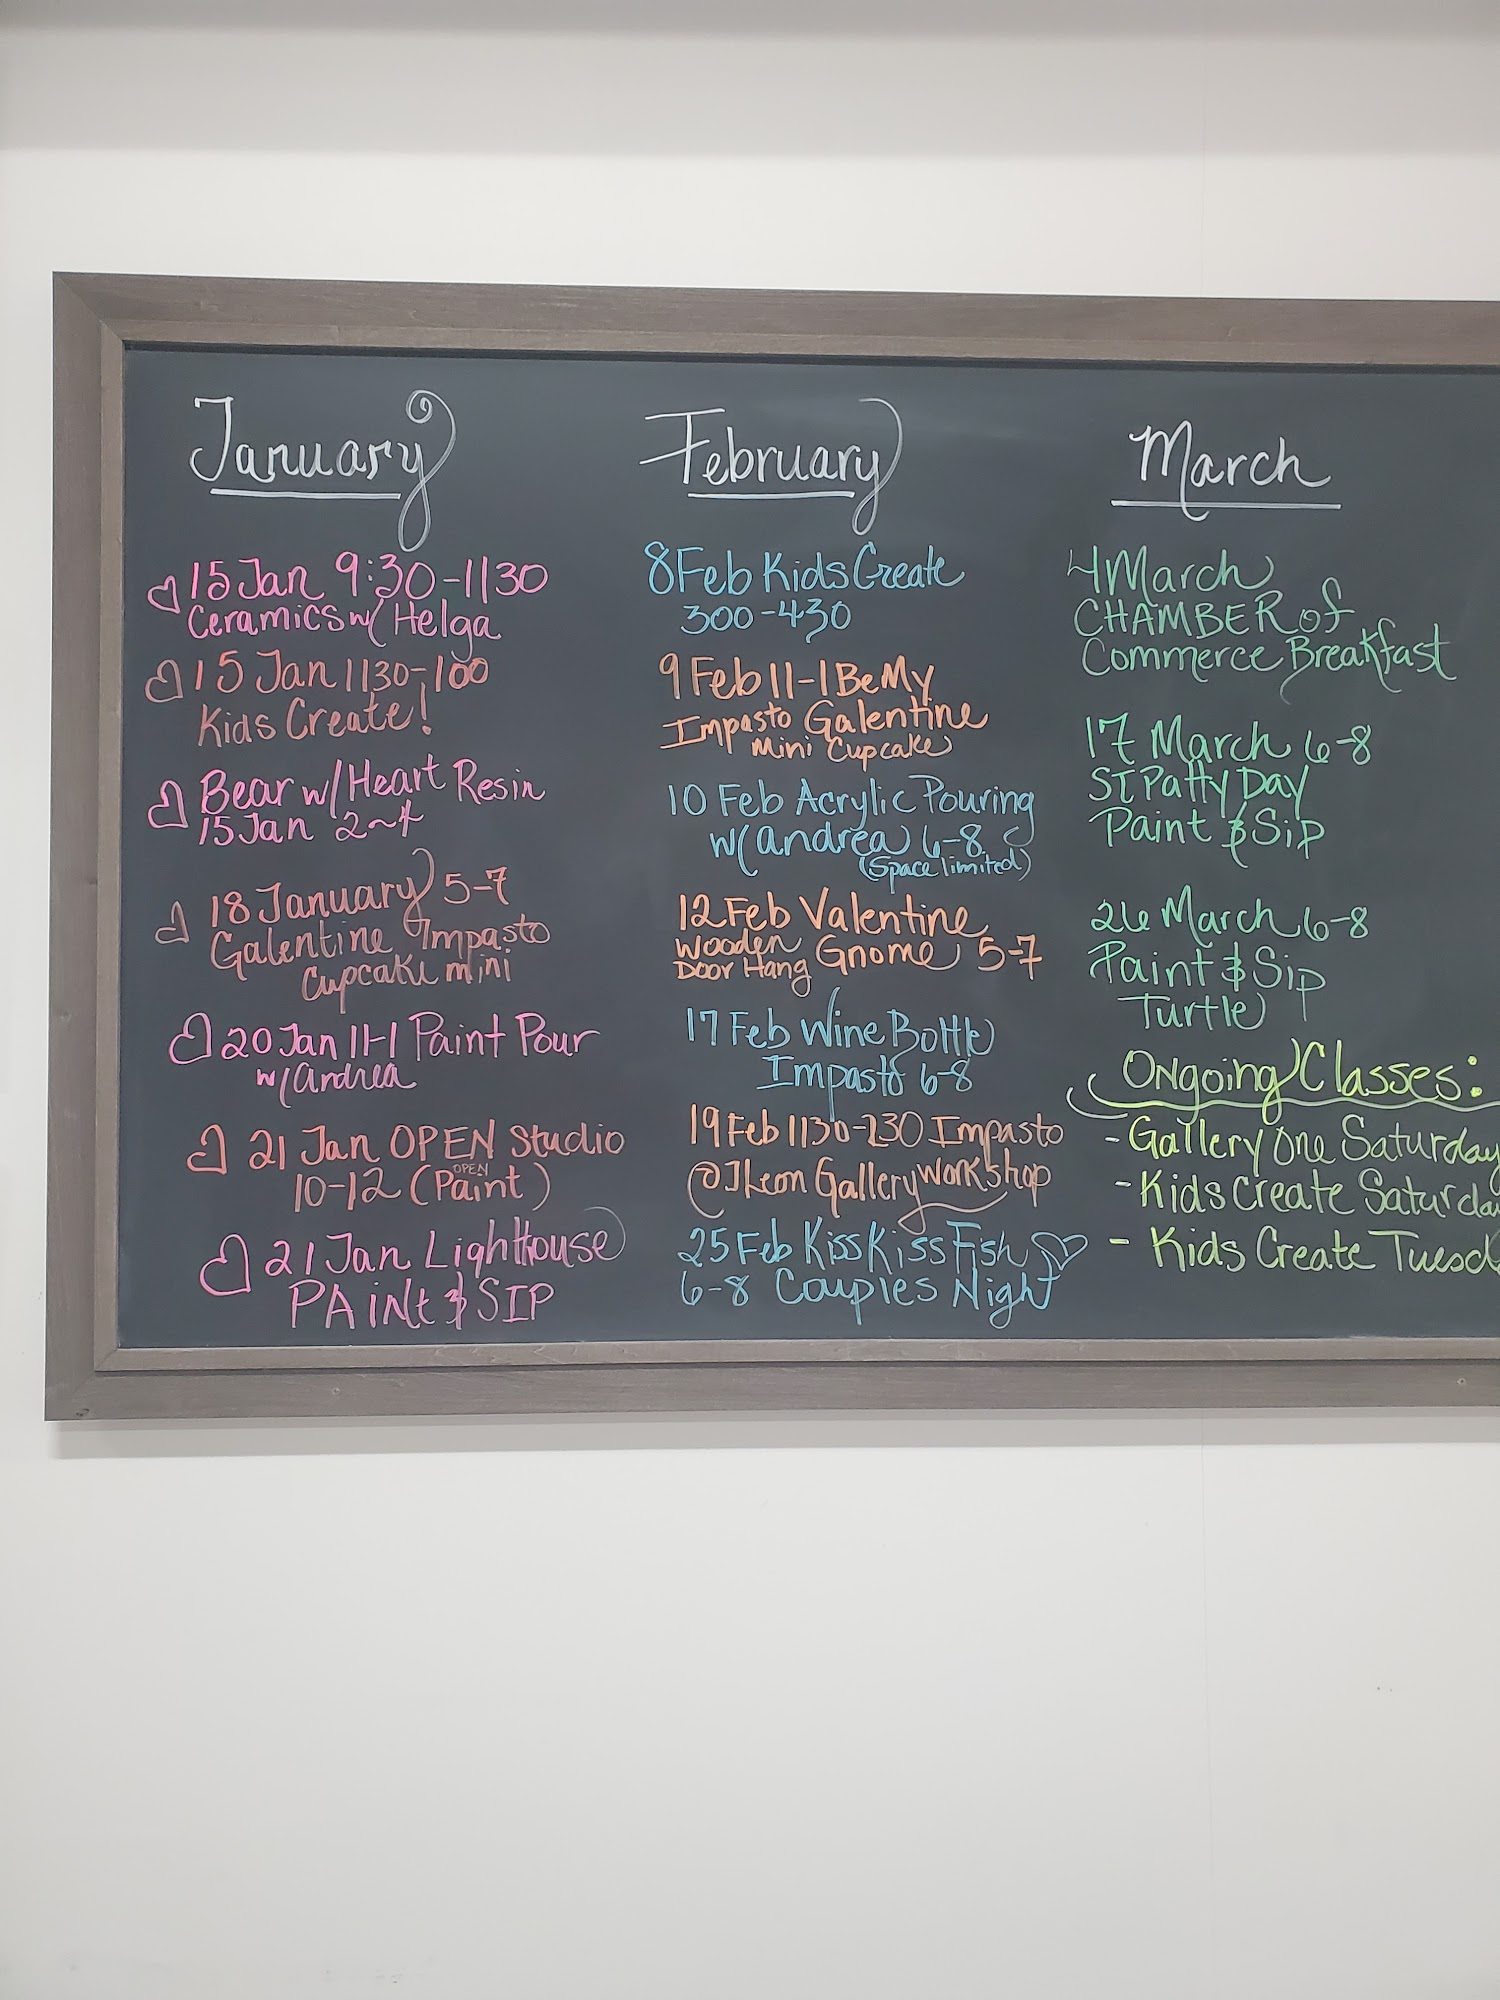 January
♡ 15 Jan 9:30-1130
Ceramics w/ Helga
♡ 15 Jan 1130-100
Kids Create!
♡ Bear w/ Heart Resin
15 Jan 2~4
♡ 18 January 5-7
Galentine Impasto
Cupcake mini
♡ 20 Jan 11-1 Paint Pour
w/ Andrea
♡ 21 Jan OPEN Studio
OPEN
10-12 (Paint)
♡ 21 Jan Lighthouse
PAINt & SIP
February
8 Feb Kids Create
300-430
9 Feb 11-1 Be My
Impasto Galentine
Mini Cupcake
10 Feb Acrylic Pouring
w/ Andrea 6-8
(Space limited)
12 Feb Valentine
Wooden Gnome 5-7
Door Hang
17 Feb Wine Bottle
Impasto 6-8
19 Feb 1130-230 Impasto
@ JLeon Gallery workshop
25 Feb Kiss Kiss Fish ♡
6-8 Couples Night
March
4 March
CHAMBER of
Commerce Breakfast
17 March 6-8
ST Patty Day
Paint & Sip
26 March 6-8
Paint & Sip
Turtle
Ongoing Classes:
- Gallery One Saturday
- Kids Create Saturda
- Kids Create Tuesd